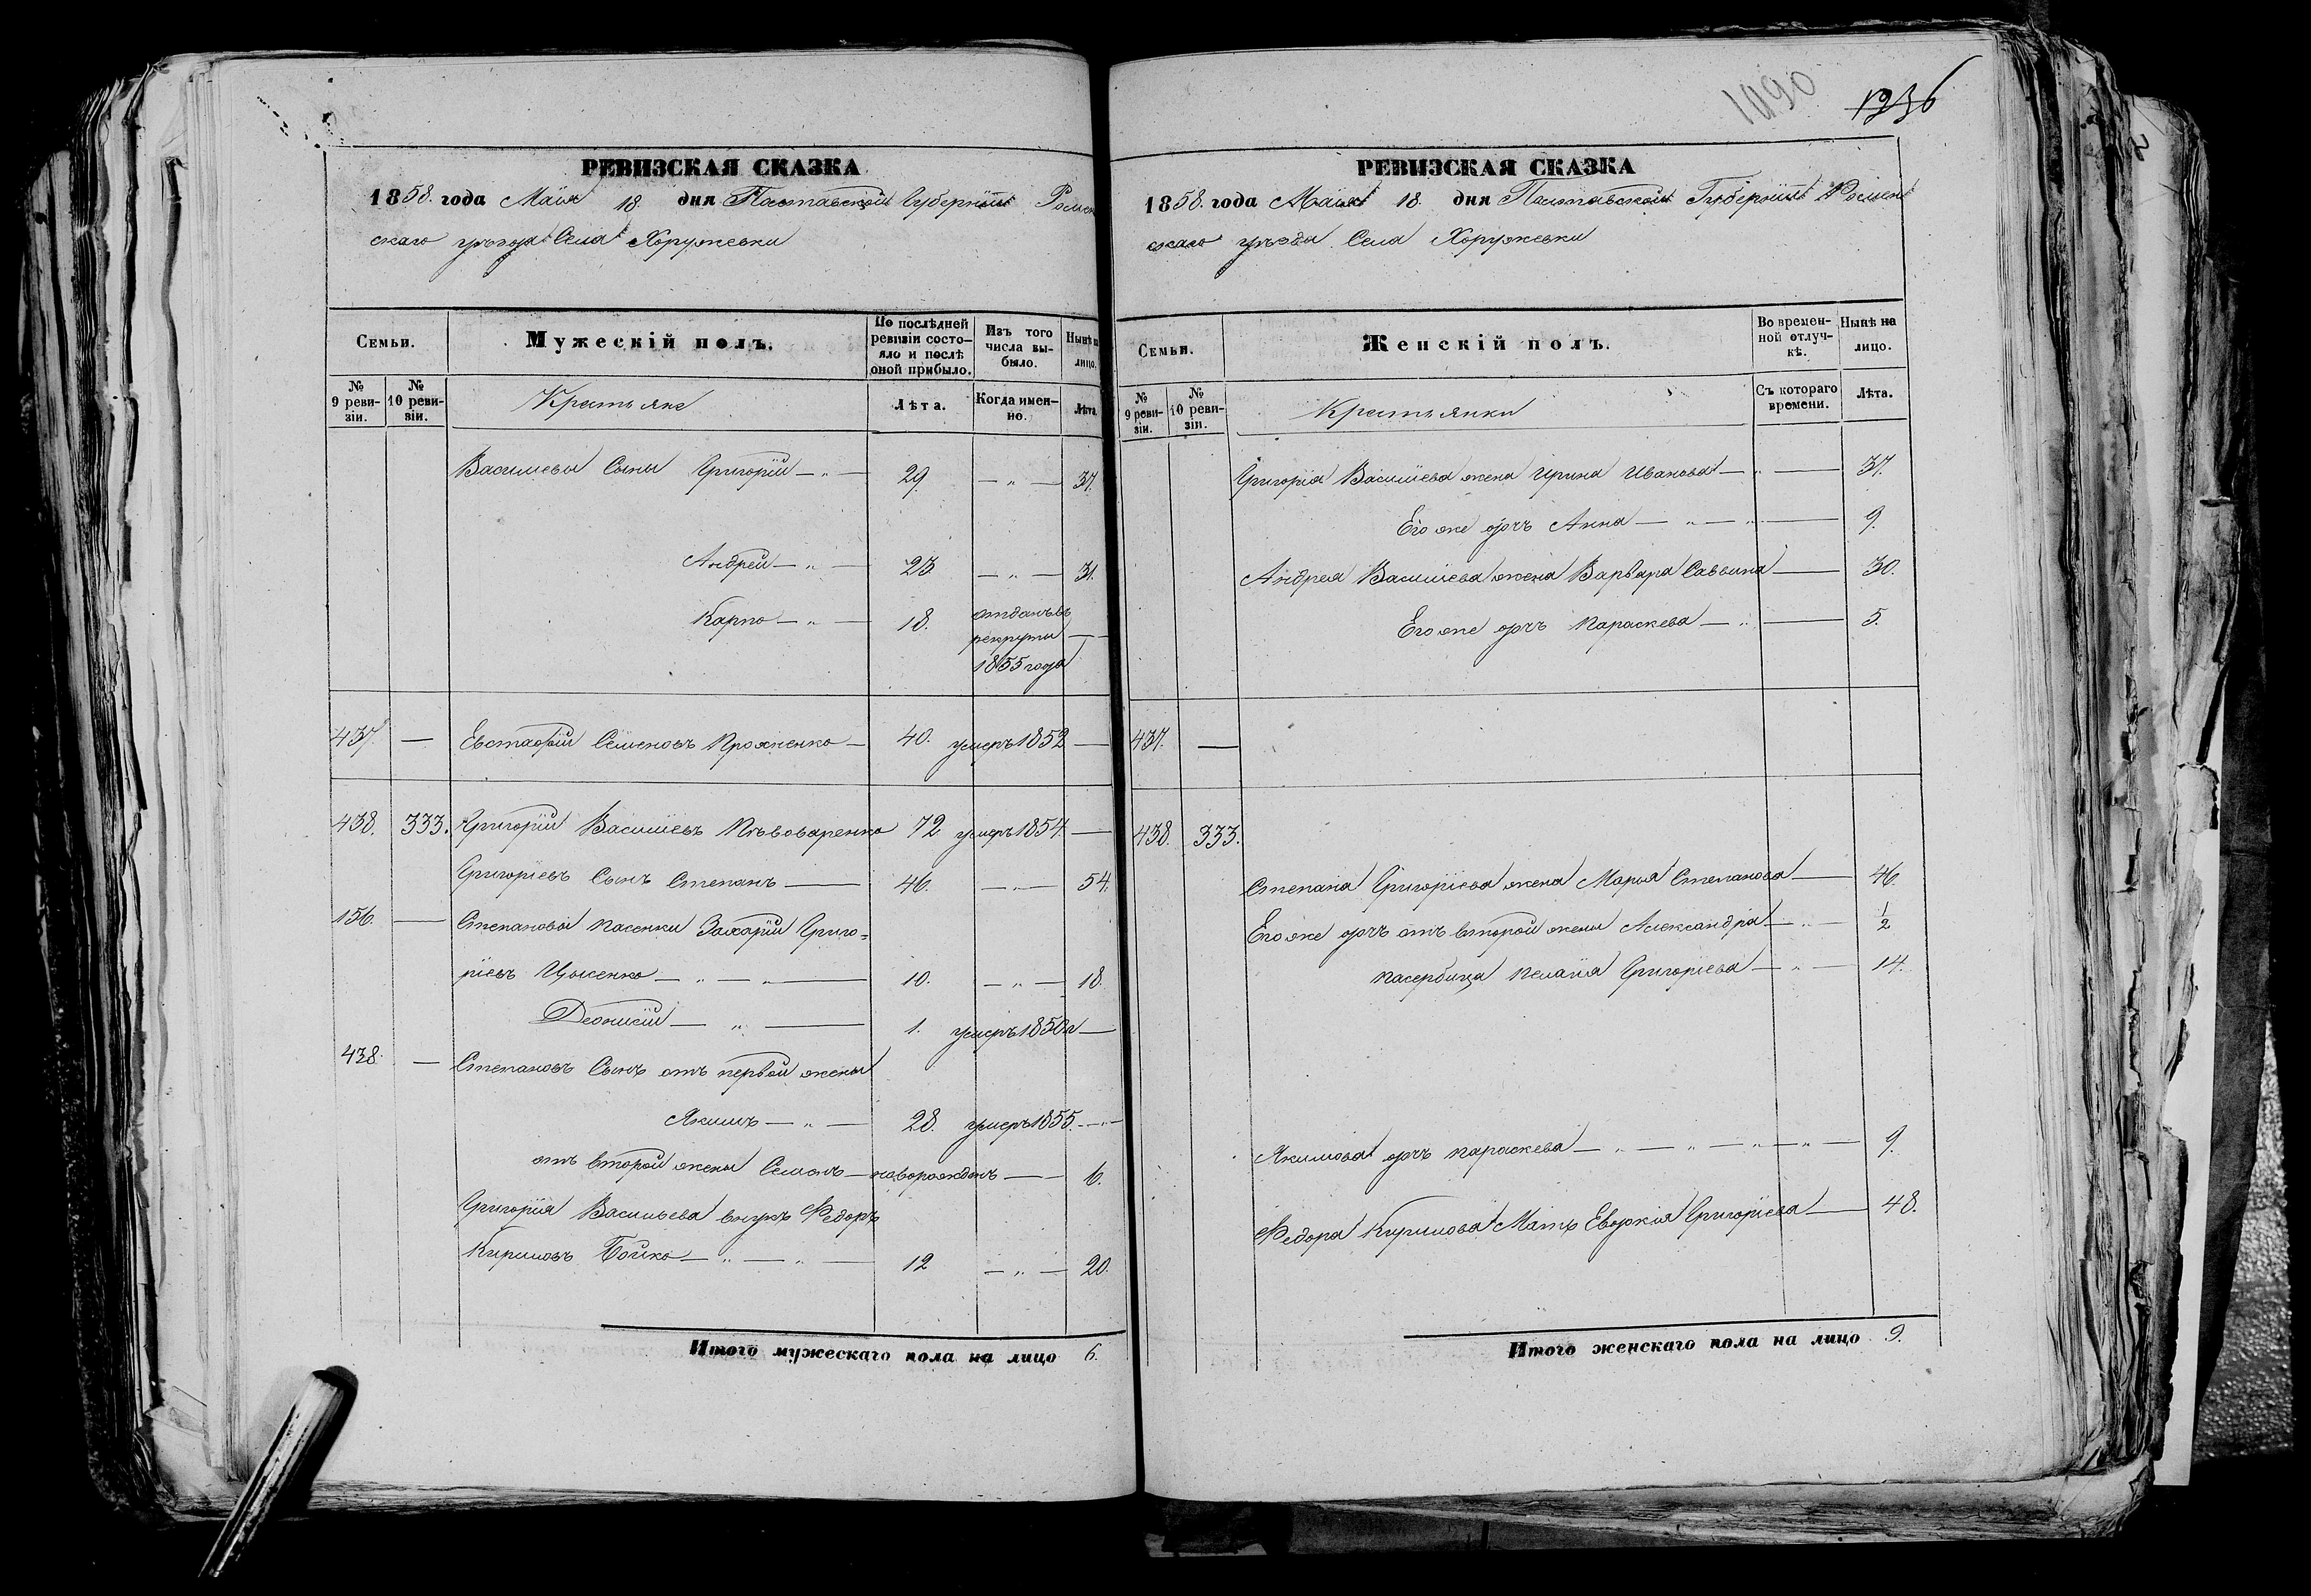 РЕВИЗСКАЯ СКАЗКА
1858. года Маія 18. дня Полтавской Губерніи Ромен
скаго уѣзда Села Хоружевки
Семьи.
Мужескій полъ.
По послѣдней ревизіи состояло и послѣ оной прибыло.
Изъ того числа выбыло.
Нынѣ на лицо.
№ 9 ревизіи.
№ 10 ревизіи.
Крестьяне
Лѣта.
Когда именно.
Лѣта.
Васильевы Сыны Григорій — „ — 29. — „ — 37.
Андрей — „ — 23. — „ — 31.
Карпо — „ — 18. отданъ въ
рекруты —
1855 года
437. — Евстафій Семеновъ Прояненко — 40. умеръ 1852 —
438. 333. Григорій Васильевъ Пѣвоваренко 72 умеръ 1854 —
Григоріевъ Сынъ Степанъ — 46. — „ — 54.
156. — Степановы пасенки Захарій Григо=
ріевъ Цысенко — „ — „ — 10. — „ — 18.
Деонисій — „ — 1. умеръ 1850 г —
438. — Степановъ Сынъ отъ первой жены
Якимъ — „ — 28. умеръ 1855. — „ —
отъ второй жены Семенъ — новорожденъ — 6.
Григорія Васильева внукъ Федоръ
Кириловъ Бойко — „ — „ — 12 — „ — 20.
Итого мужескаго пола на лицо 6.
1090
1236
РЕВИЗСКАЯ СКАЗКА
1858. года Маія 18. дня Полтавской Губерніи Ромен
скаго уѣзда Села Хоружевки
Семьи.
Женскій полъ.
Во временной отлучкѣ.
Нынѣ на лицо.
№ 9 ревизіи.
№ 10 ревизіи.
Крестьянки
Съ котораго времени.
Лѣта.
Григорія Васильева жена Ирина Иванова — „ — 37.
Его же дочь Анна — „ — „ — 9.
Андрея Васильева жена Варвара Саввина — 30.
Его же дочь Параскева — „ — 5.
437. —
438. 333.
Степана Григоріева жена Марья Степанова — 46.
Его же дочь отъ второй жены Александра — „ — 1/2
пасербица Пелагія Григоріева — „ — 14.
Якимова дочь Параскева — „ — „ — „ — „ — 9.
Федора Кирилова Мать Евдокія Григоріева — 48.
Итого женскаго пола на лицо 9.